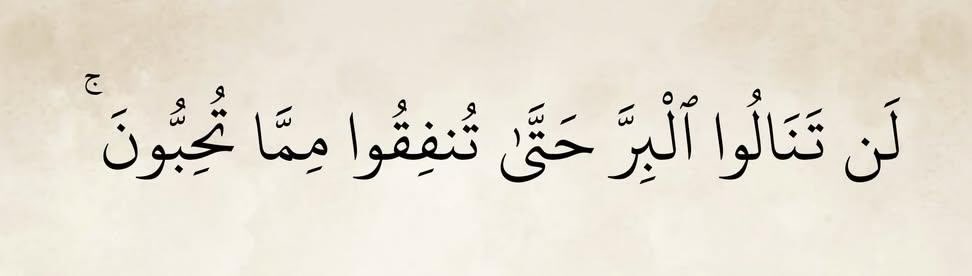 لَن تَنَالُوا ٱلْبِرَّ حَتَّىٰ تُنفِقُوا مِمَّا تُحِبُّونَ ۚ